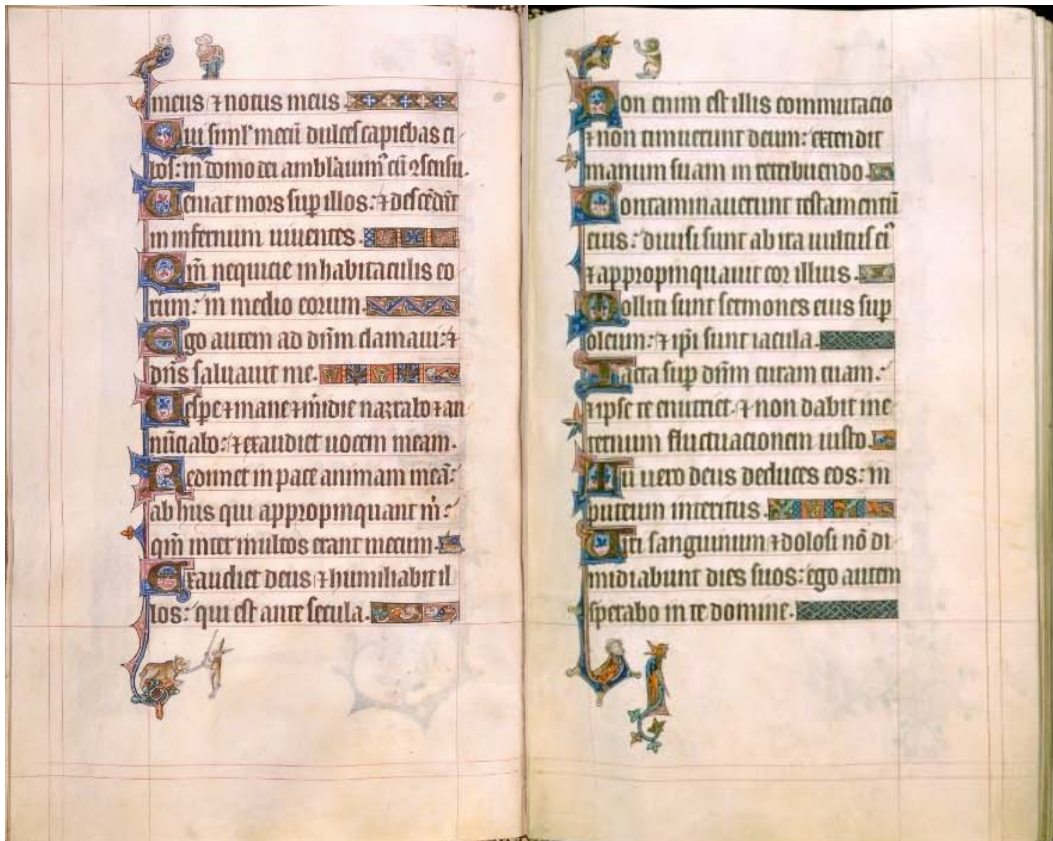 meus ⁊ notus meus.
Qui siml' mecū dulces capiebas ci
bos: in domo dei amblauimꝰ cū ꝯsensu.
Ueniat mors sup illos: ⁊ descēdāt
in infernum uiuentes.
Qm̄ nequicie in habitaculis eo
rum: in medio eorum.
Ego autem ad dn̄m clamaui: ⁊
dn̄s saluauit me.
Uespe ⁊ mane ⁊ m̄idie narrabo ⁊ an
nūciabo: ⁊ exaudiet uocem meam.
Redimet in pace animam meā:
ab hiis qui appropinquant m̄:
qm̄ inter multos erant mecum.
Exaudiet deus ⁊ humiliabit il
los: qui est ante secula.
Non enim est illis commutacio
⁊ non timuerunt deum: extendit
manum suam in retribuendo.
Contaminauerunt testamentū
eius: diuisi sunt ab ira uultus eiꝰ
⁊ appropinquauit cor illius.
Molliti sunt sermones eius sup
oleum: ⁊ ipi sunt iacula.
Iacta sup dn̄m curam tuam:
⁊ ipse te enutriet. ⁊ non dabit ine
ternum fluctuacionem iusto.
Tu uero deus deduces eos: in
puteum interitus.
Uiri sanguinum ⁊ dolosi nō di
midiabunt dies suos: ego autem
sperabo in te domine.